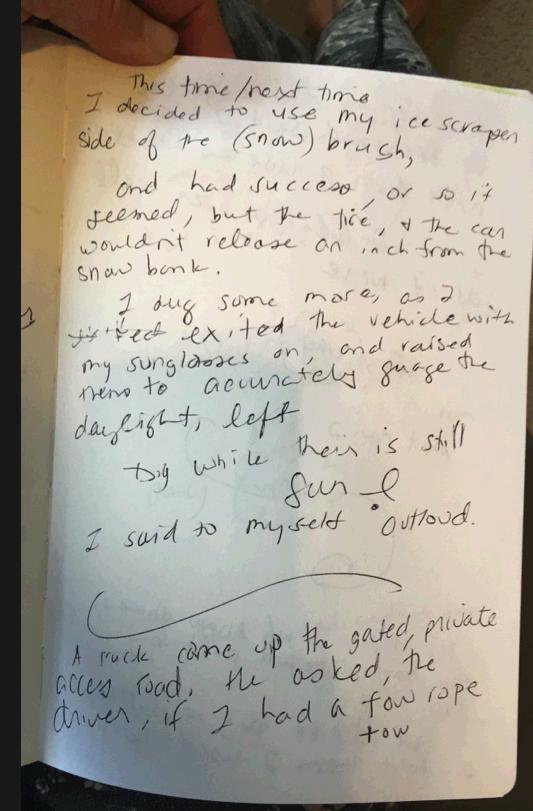 This time/next time
I decided to use my ice scraper
side of the (snow) brush,
and had success, or so it
seemed, but the tire, & the car
wouldn't release an inch from the
snow bank.
I dug some more, as I
exited the vehicle with
my sunglasses on, and raised
them to accurately guage the
daylight, left
Dig while their is still
Sun!
I said to myself outloud.
A ruck came up the gated, private
access road. He asked, the
driver, if I had a tow rope
tow